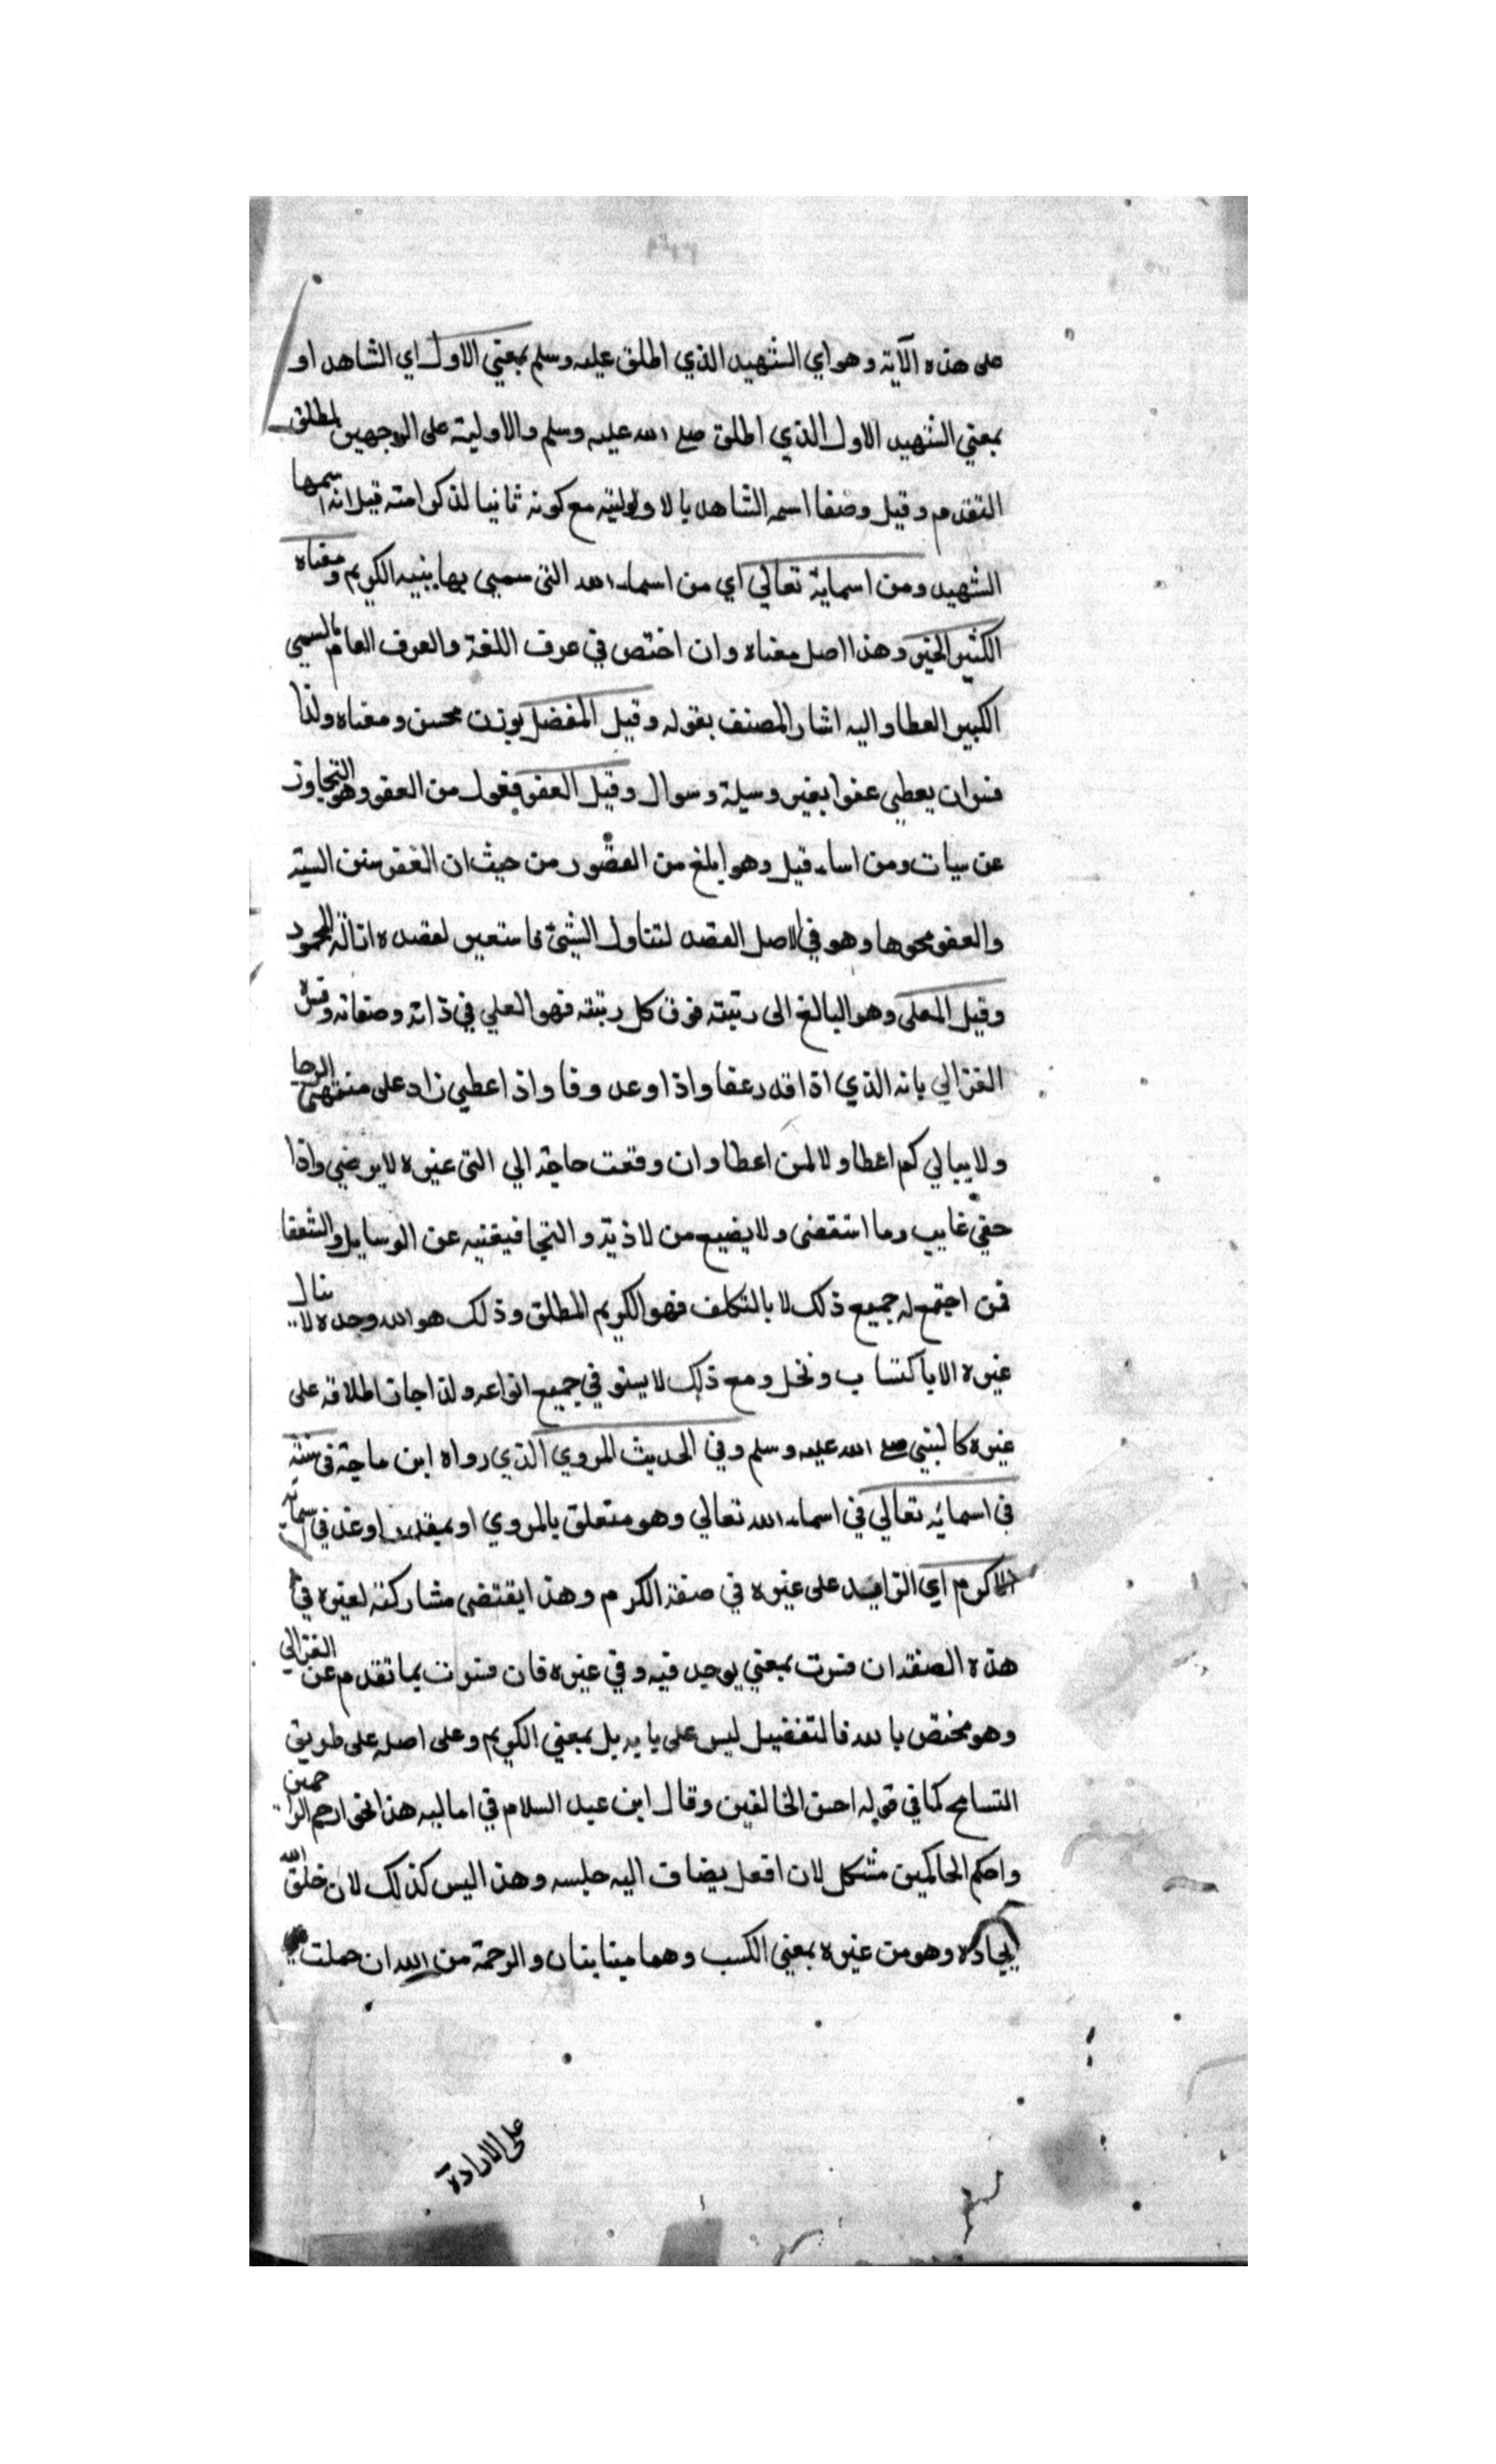 على هذه الآية وهو اي الشهيد الذي اطلق عليه وسلم بمعني الاول اي الشاهد او
بمعني الشهيد الاول الذي اطلق صلى الله عليه وسلم والاولية على الوجهين لمطلق
التقدم وقيل وصفا اسمه الشاهد بالاولية مع كونه ثانيا لذكر امته قبل انه اسمها
الشهيد ومن اسمائه تعالي اي من اسماء الله التي سمي بها بنبيه الكريم ومعناه
الكثير الخير وهذا اصل معناه وان اختص في عرف اللغة والعرف العام بالسمي
الكبير العطا واليه اشار المصنف بقوله وقيل المفضل بوزن محسن ومعناه ولذا
فسر ان يعطي عفوا بغير وسيلة وسوال وقيل العفو فعول من العفو وهو التجاوز
عن سيات ومن اساء قيل وهو ابلغ من الغفور من حيث ان الغفر ستر السية
والعفو محوها وهو في الاصل القصد لتناول الشيئ فاستعير لقصده ازالة المحمود
وقيل المعلى وهو البالغ الى رتبته فوق كل رتبته فهو العلي في ذاته وصفاته وفسره
الغزالي بانه الذي اذا قدر عفا واذا وعد وفا واذا اعطي زاد على منتهى الرجا
ولا يبالي كم اعطا ولا لمن اعطا وان وقعت حاجة الي التي غيره لا يرضي واذا
حفي غايب وما استقضى ولا يضيع من لاذ به والتجا فيغنيه عن الوسايل والشفعا
فمن اجتمع له جميع ذلك لا بالتكلف فهو الكريم المطلق وذلك هو الله وحده لا ينال
غيره الا باكتساب ونخل ومع ذلك لا يستوفي جميع انواعه ولذا جاز اطلاقه على
غيره كالنبي صلى الله عليه وسلم وفي الحديث المروي الذي رواه ابن ماجة في سننه
في اسمائه تعالي في اسماء الله تعالي وهو متعلق بالمروي او بمقدر او عد في اسمائه
الاكرم اي الزايد على غيره في صفة الكرم وهذا يقتضى مشاركة لغيره في
هذه الصفة ان فسرت بمعني يوجد فيه وفي غيره فان فسرت بما تقدم عن الغزالي
وهو مختص بالله فالتفضيل ليس على بابه بل بمعني الكريم وعلى اصله على طريق
التسامح كما في قوله احسن الخالقين وقال ابن عبد السلام في اماليه هذا نحو ارحم الراحمين
واحكم الحاكمين مشكل لان افعل يضاف اليه جلسه وهذا ليس كذلك لان خلق الله
ايجاده وهو من غيره بمعني الكسب وهما متباينان والرحمة من الله ان حملت
على الارادة